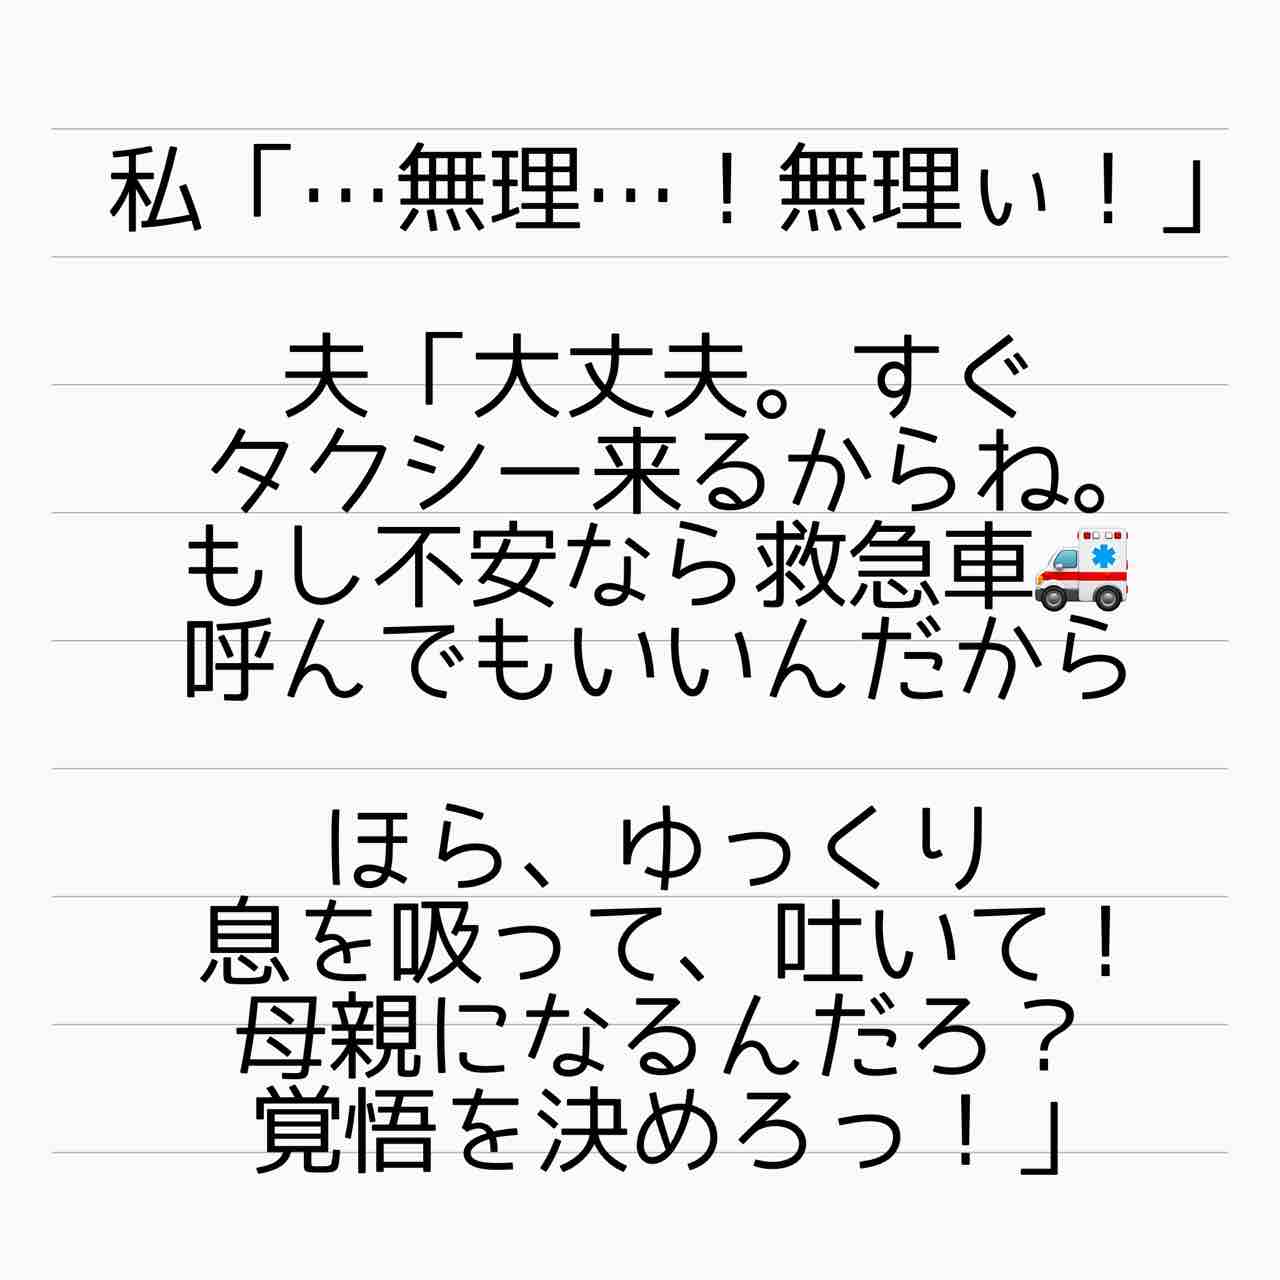 私「…無理…！無理ぃ！」
夫「大丈夫。すぐ
タクシー来るからね。
もし不安なら救急車🚑
呼んでもいいんだから
ほら、ゆっくり
息を吸って、吐いて！
母親になるんだろ？
覚悟を決めろっ！」